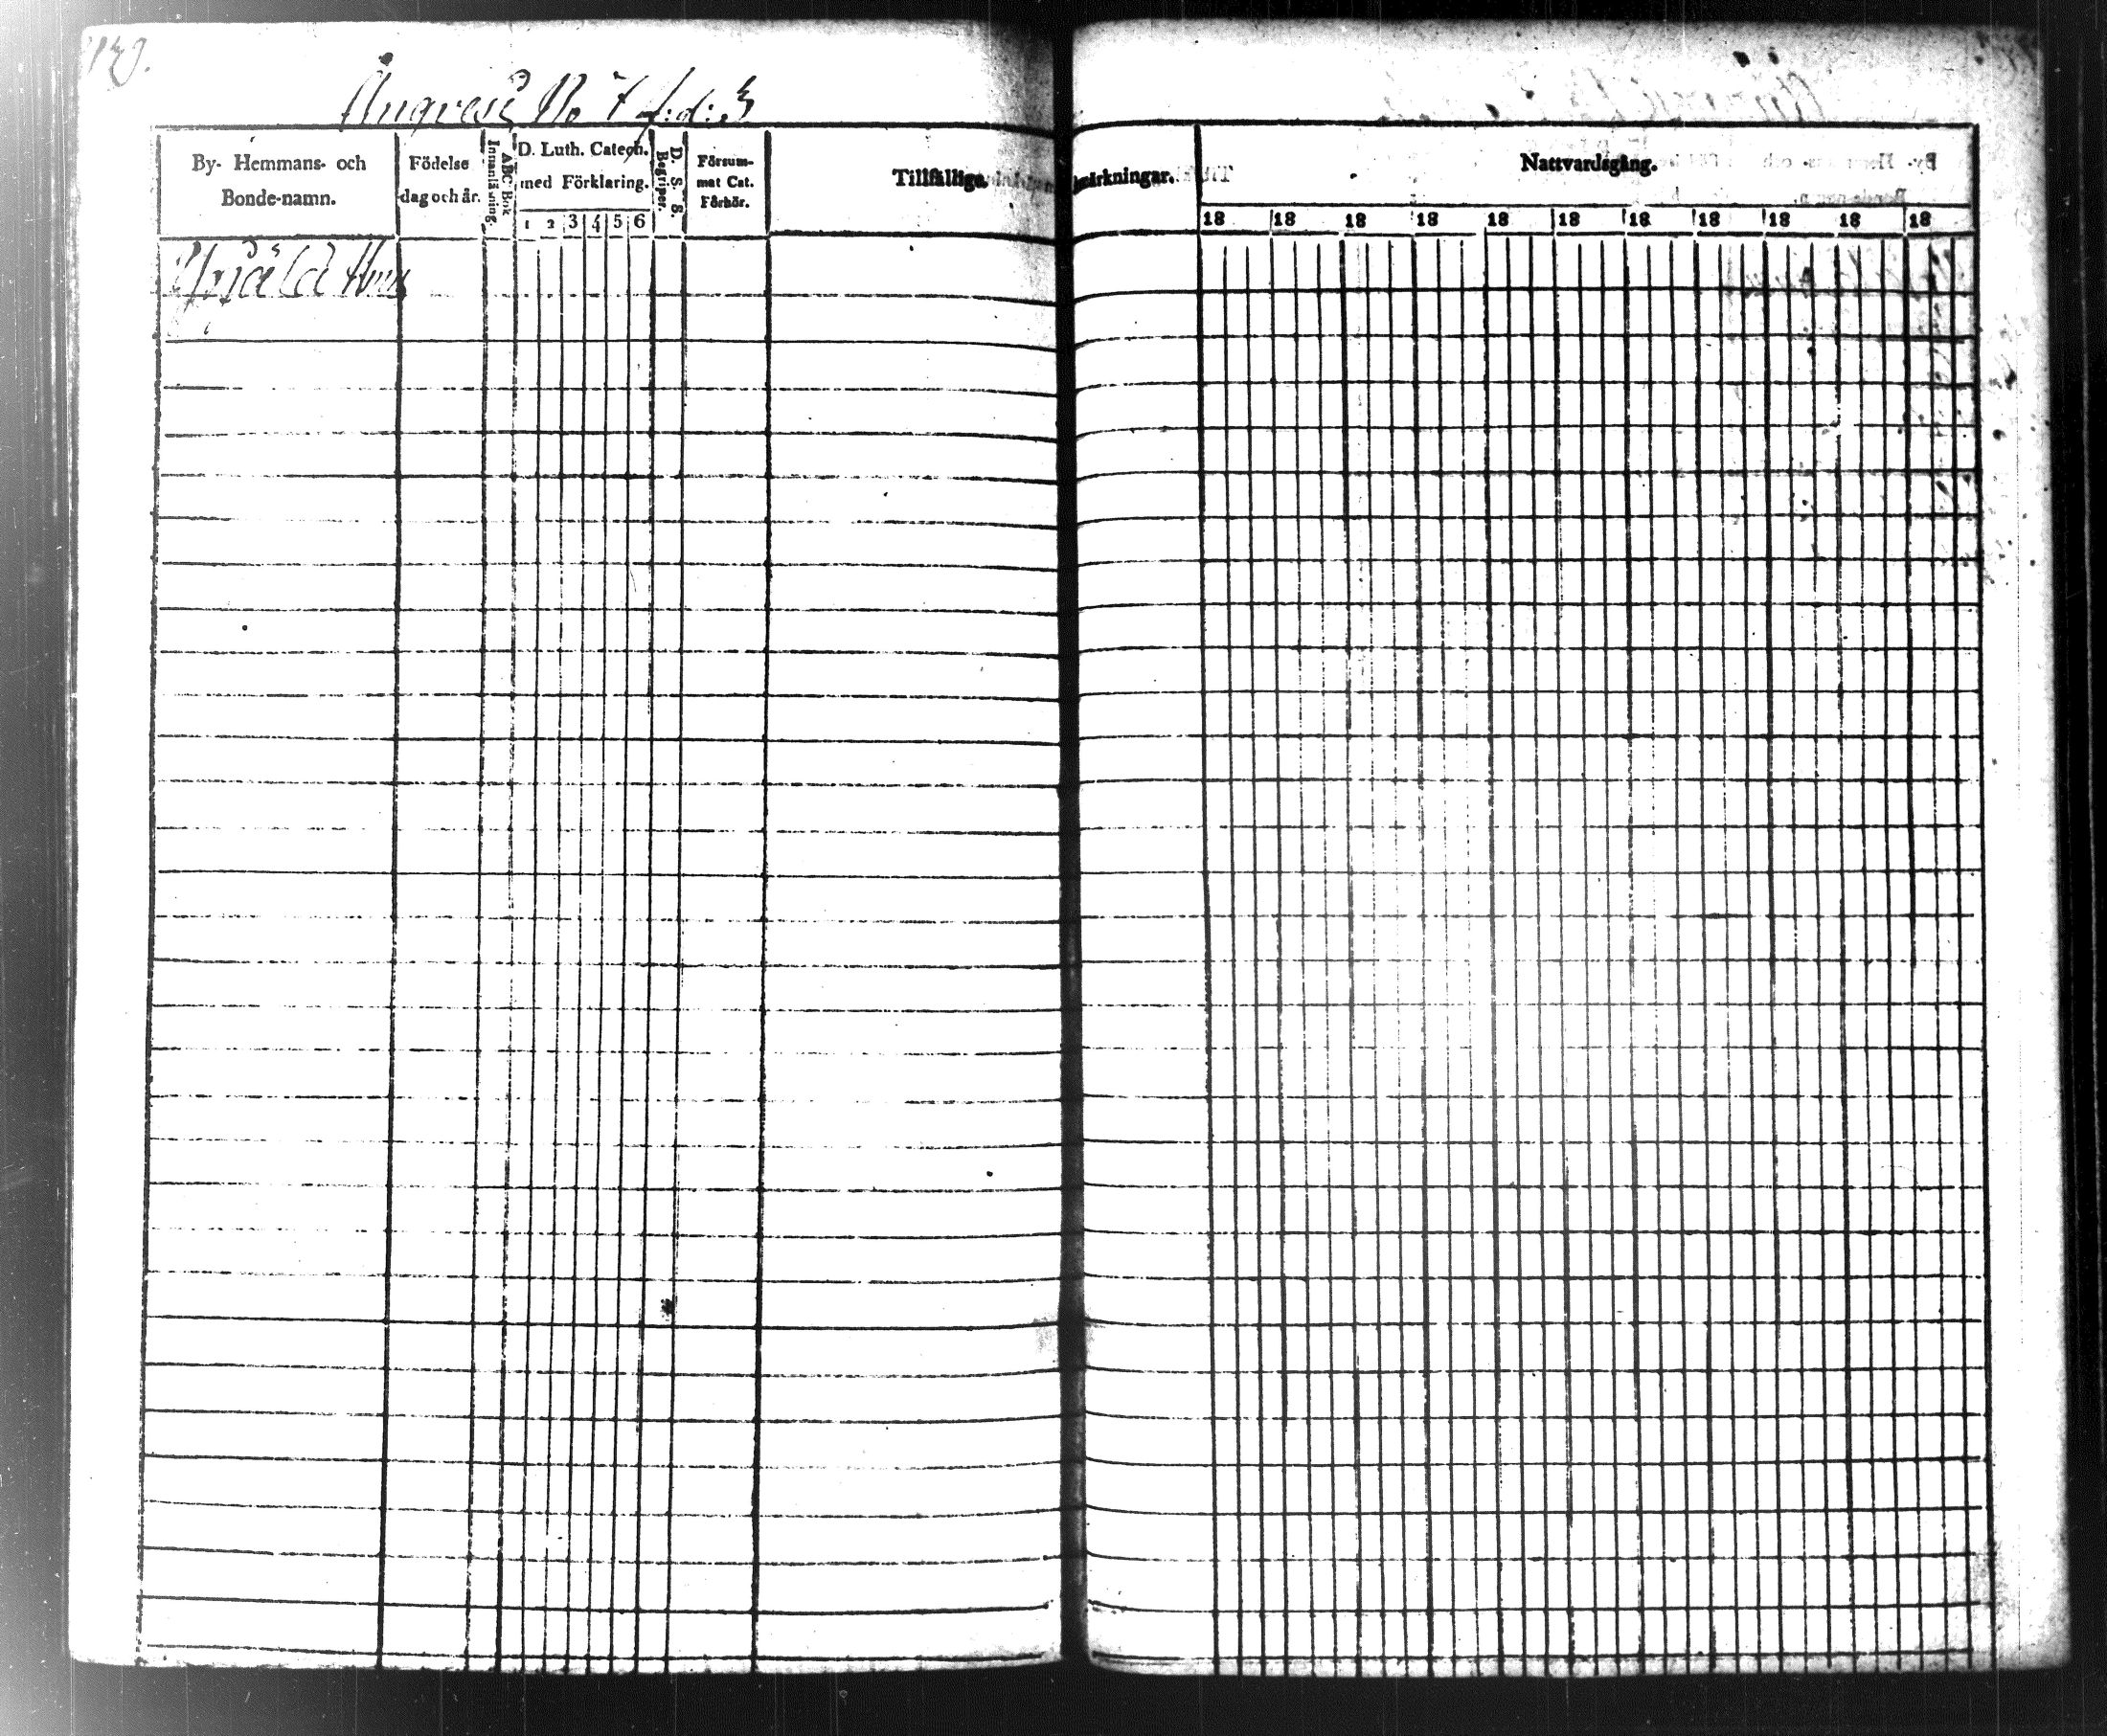 130.
Ångvesi No 7 f:d: 3
By- Hemmans- och
Bonde-namn.
Födelse
dag och år.
Innanläsning.
ABC Bok
D. Luth. Catech.
med Förklaring.
1 2 3 4 5 6
D. S. S.
Begriper.
Försum-
mat Cat.
Förhör.
Tillfällige
märkningar.
Nattvardsgång.
18 18 18 18 18 18 18 18 18 18 18